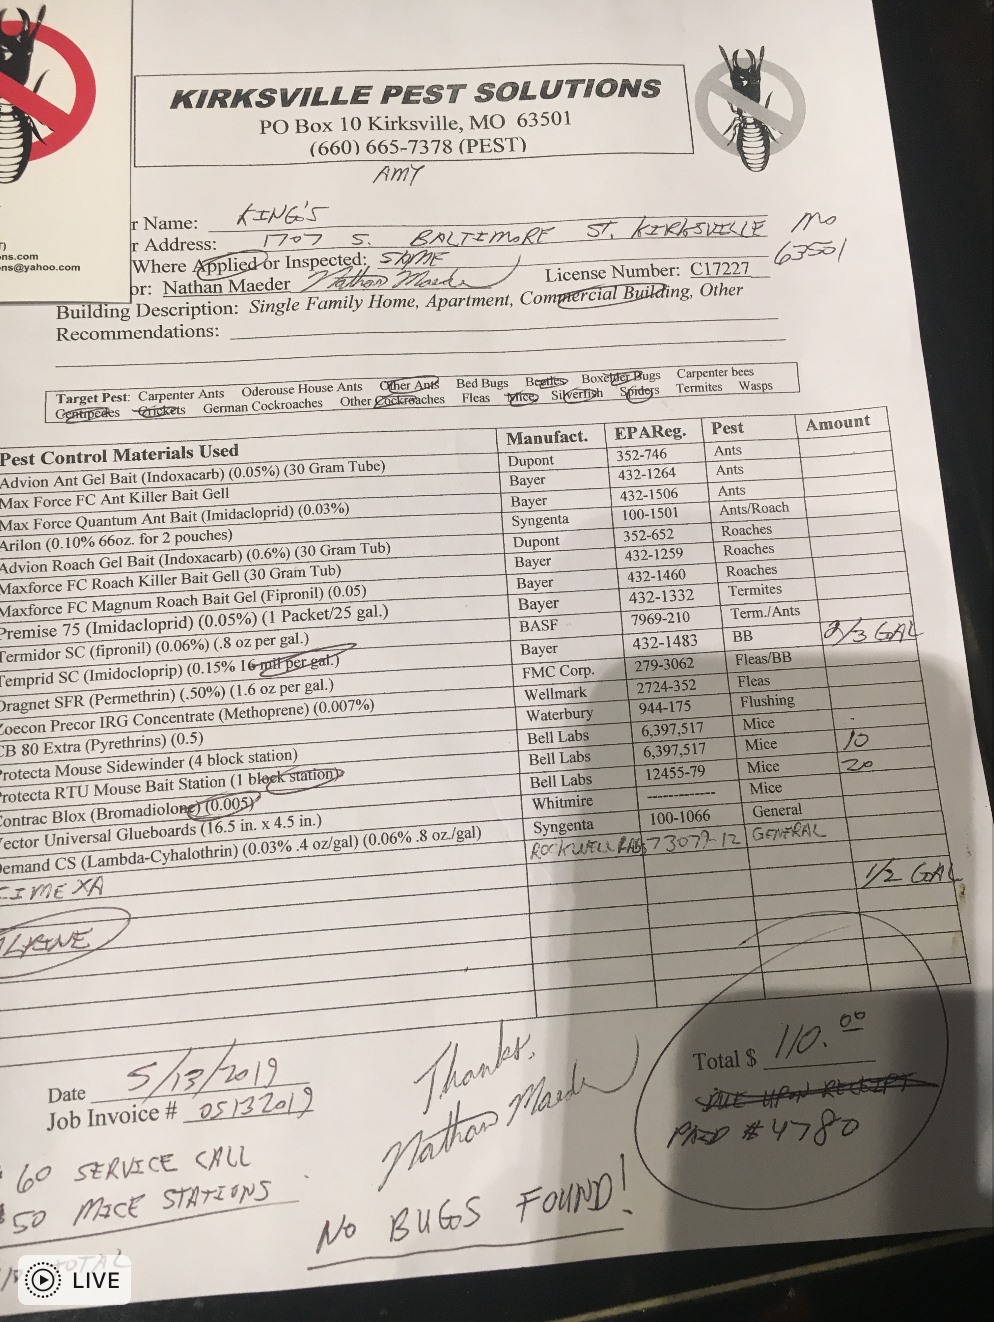 KIRKSVILLE PEST SOLUTIONS
PO Box 10 Kirksville, MO 63501
(660) 665-7378 (PEST)
AMY
r Name: KING'S
r Address: 1707 S. BALTIMORE ST. KIRKSVILLE MO
63501
ns.com
ns@yahoo.com
Where Applied or Inspected: SAME
or: Nathan Maeder Nathan Maeder License Number: C17227
Building Description: Single Family Home, Apartment, Commercial Building, Other
Recommendations:
Target Pest: Carpenter Ants Oderouse House Ants Other Ants Bed Bugs Beetles Boxelder Bugs Carpenter bees
Centipedes Crickets German Cockroaches Other Cockroaches Fleas Mice Silverfish Spiders Termites Wasps
Pest Control Materials Used Manufact. EPAReg. Pest Amount
Advion Ant Gel Bait (Indoxacarb) (0.05%) (30 Gram Tube) Dupont 352-746 Ants
Max Force FC Ant Killer Bait Gell Bayer 432-1264 Ants
Max Force Quantum Ant Bait (Imidacloprid) (0.03%) Bayer 432-1506 Ants
Arilon (0.10% 66oz. for 2 pouches) Syngenta 100-1501 Ants/Roach
Advion Roach Gel Bait (Indoxacarb) (0.6%) (30 Gram Tub) Dupont 352-652 Roaches
Maxforce FC Roach Killer Bait Gell (30 Gram Tub) Bayer 432-1259 Roaches
Maxforce FC Magnum Roach Bait Gel (Fipronil) (0.05) Bayer 432-1460 Roaches
Premise 75 (Imidacloprid) (0.05%) (1 Packet/25 gal.) Bayer 432-1332 Termites
Termidor SC (fipronil) (0.06%) (.8 oz per gal.) BASF 7969-210 Term./Ants
Temprid SC (Imidocloprip) (0.15% 16 mil per gal.) Bayer 432-1483 BB 2/3 GAL
Dragnet SFR (Permethrin) (.50%) (1.6 oz per gal.) FMC Corp. 279-3062 Fleas/BB
Zoecon Precor IRG Concentrate (Methoprene) (0.007%) Wellmark 2724-352 Fleas
CB 80 Extra (Pyrethrins) (0.5) Waterbury 944-175 Flushing
Protecta Mouse Sidewinder (4 block station) Bell Labs 6,397,517 Mice
Protecta RTU Mouse Bait Station (1 block station) Bell Labs 6,397,517 Mice 10
Contrac Blox (Bromadiolone) (0.005) Bell Labs 12455-79 Mice 20
Vector Universal Glueboards (16.5 in. x 4.5 in.) Whitmire ------------- Mice
Demand CS (Lambda-Cyhalothrin) (0.03% .4 oz/gal) (0.06% .8 oz./gal) Syngenta 100-1066 General
CIMEXA ROCKWELL LABS 73079-12 GENERAL
1/2 GAL
Date 5/13/2019
Job Invoice # 05132019
Thanks,
Nathan Maeder
Total $ 110.00
DUE UPON RECEIPT
PAID #4780
60 SERVICE CALL
$50 MICE STATIONS
TOTAL
NO BUGS FOUND!
LIVE